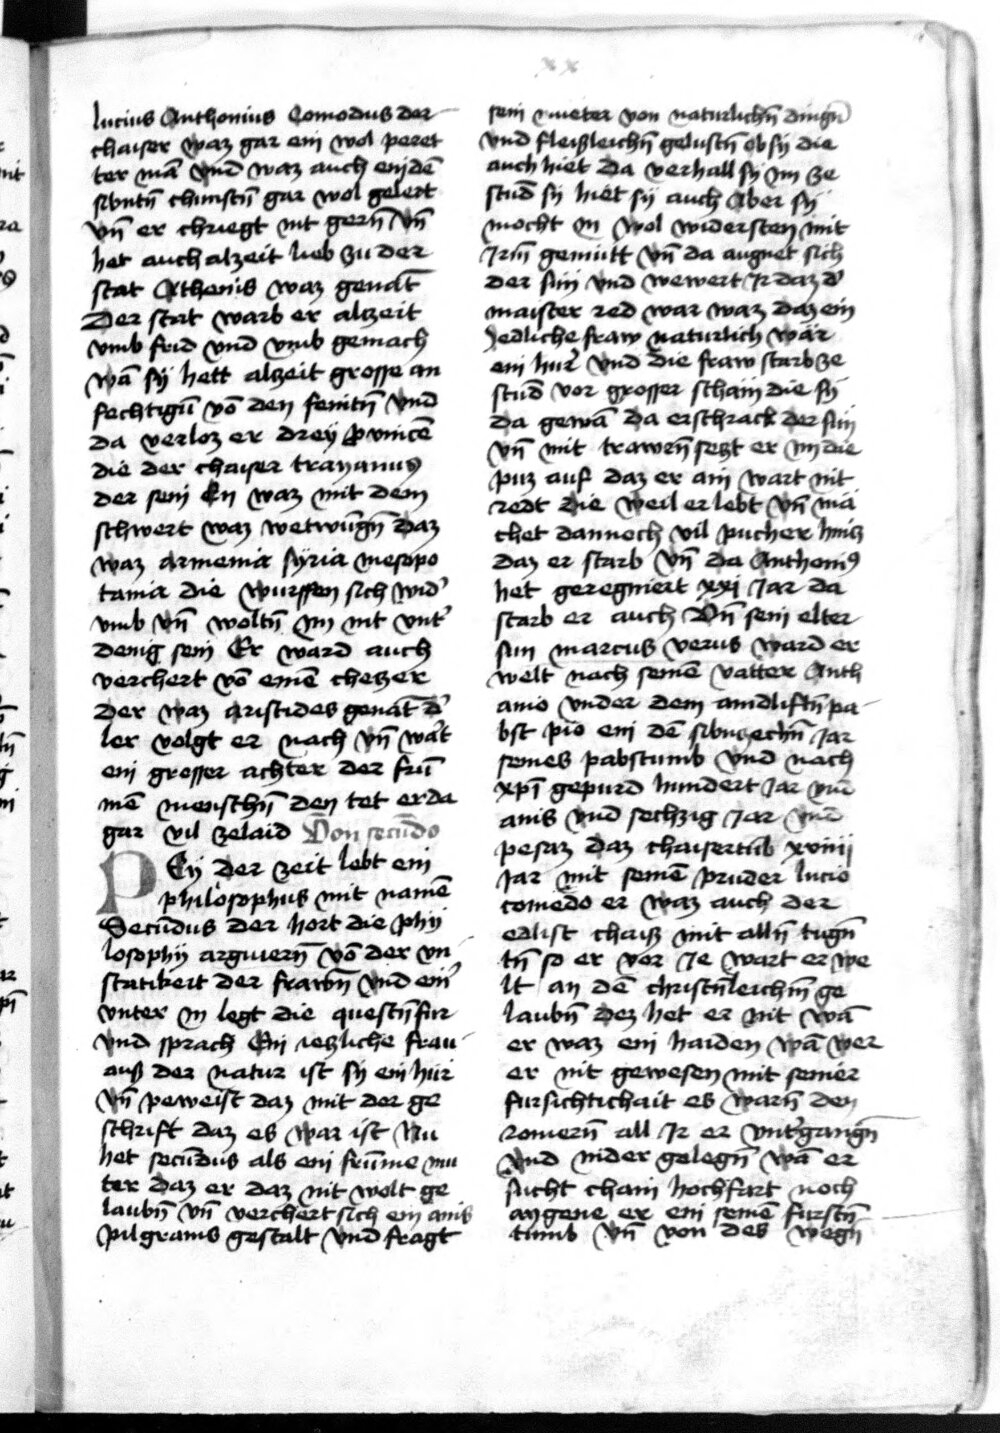 xx
lucius Anthonius Comodus der
chaiser waz gar ein wol peret
ter mā vnd waz auch en den̄
sibntn̄ chunstn̄ gar wol gelert
vn̄ er chriegt nit gern̄ vn̄
het auch alzeit lieb zu der
stat Athenis waz genāt
Der stat warb er alzeit
vmb frid vnd vmb gemach
wā sy hett alzeit grosse an
fechtigū vō den feintn̄ vnd
da verloz er drey pvincē
die der chaiser trayanus
der sein En waz mit dem
schwert waz wetwūgn̄ daz
waz armenia syria mesopo
tamia die wurffen sich wid'
vmb vn̄ woltn̄ im nit vnt'
denig sein Er ward auch
verchert vō einē chetzer
der waz aristides genāt d'
ler volgt er nach vn̄ wa't
ein grosser achter der frū
mē menschn̄ den tet er da
gar vil zelaid Von secūdo
PEy der zeit lebt ein
philosophus mit namē
Secūdus der hort die phy
losophy arguiern̄ vō der vn
statikeit der frawn̄ vnd ein'
vnter in legt die questn̄ fur
vnd sprach Ein ietzliche frau
auß der natur ist sy ein hur
vn̄ peweist daz mit der ge
schrift daz es war ist Nu
het secūdus als ein frūme mu
ter daz er daz nit wolt ge
laubn̄ vn̄ verchert sich ein ains
pilgrams gestalt vnd fragt
sein mueter von naturlichn̄ dingn̄
vnd fleißleichn̄ gelustn̄ ob sy die
auch hiet da verhall sy im ze
stūd sy hiet sy auch Aber sy
mocht in wol widersten mit
Irm̄ gemutt vn̄ da augnet sich
der sun vnd wewert Ir daz d'
maister red war waz daz ein
Jedliche fraw naturlich wär
ein hur' vnd die fraw starb ze
stūd vor grosser scham die sy
da gewā da erschrack der sun
vn̄ mit trawrn̄ setzt er im die
puz auf daz er ain wart nit
redt die weil er lebt vn̄ ma
chet dannoch vil pucher hintz
daz er starb vn̄ da Anthonius
het geregniert xxi Jar da
starb er auch Vn̄ sein elter
sun marcus verus ward er
welt nach seinem vatter Anth
anio vnder dem aindliftn̄ pa
bst pio ein dē sibnzechn̄ Jar
seines pabstumb vnd nach
xpi gepurd hundert Jar vnd
ains vnd sechzig Jar vnd
pesaz daz chaisertūb xviiij
Jar mit seinē pruder lucio
comedo er waz auch der
edlist chaiß mit alln̄ tugn̄
tn̄ so er vor Je wart er we
lt an dē christn̄leichn̄ ge
laubn̄ dez het er nit wā
er waz ein haiden wā wer
er nit gewesen mit seiner
fursichtichait es warn̄ den
romern̄ all Ir er vnt'gangn̄
vnd nider gelegn̄ wā er
sucht chain hochfart noch
aygene er ein seinē furstn̄
tumb vn̄ von des wegn̄